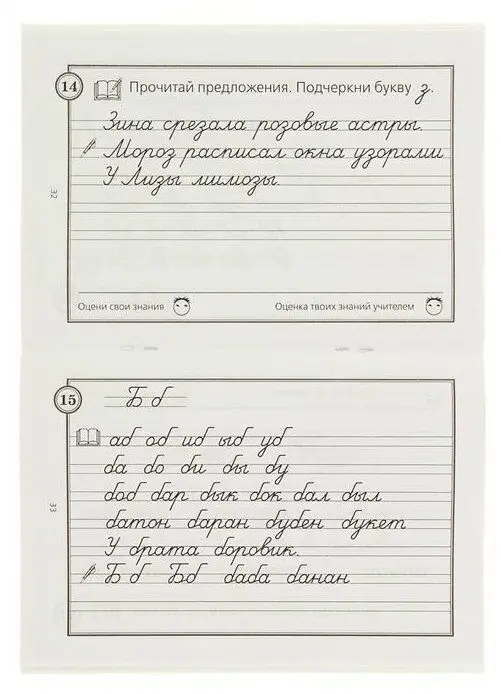 14 Прочитай предложения. Подчеркни букву з.
Зина срезала розовые астры.
Мороз расписал окна узорами
У Лизы мимозы.
32
Оцени свои знания Оценка твоих знаний учителем
15 Б б
аб об иб ыб уб
ба бо би бы бу
боб бар бык бок бал был
батон баран бубен букет
У брата боровик.
Б б Бб баба банан
33